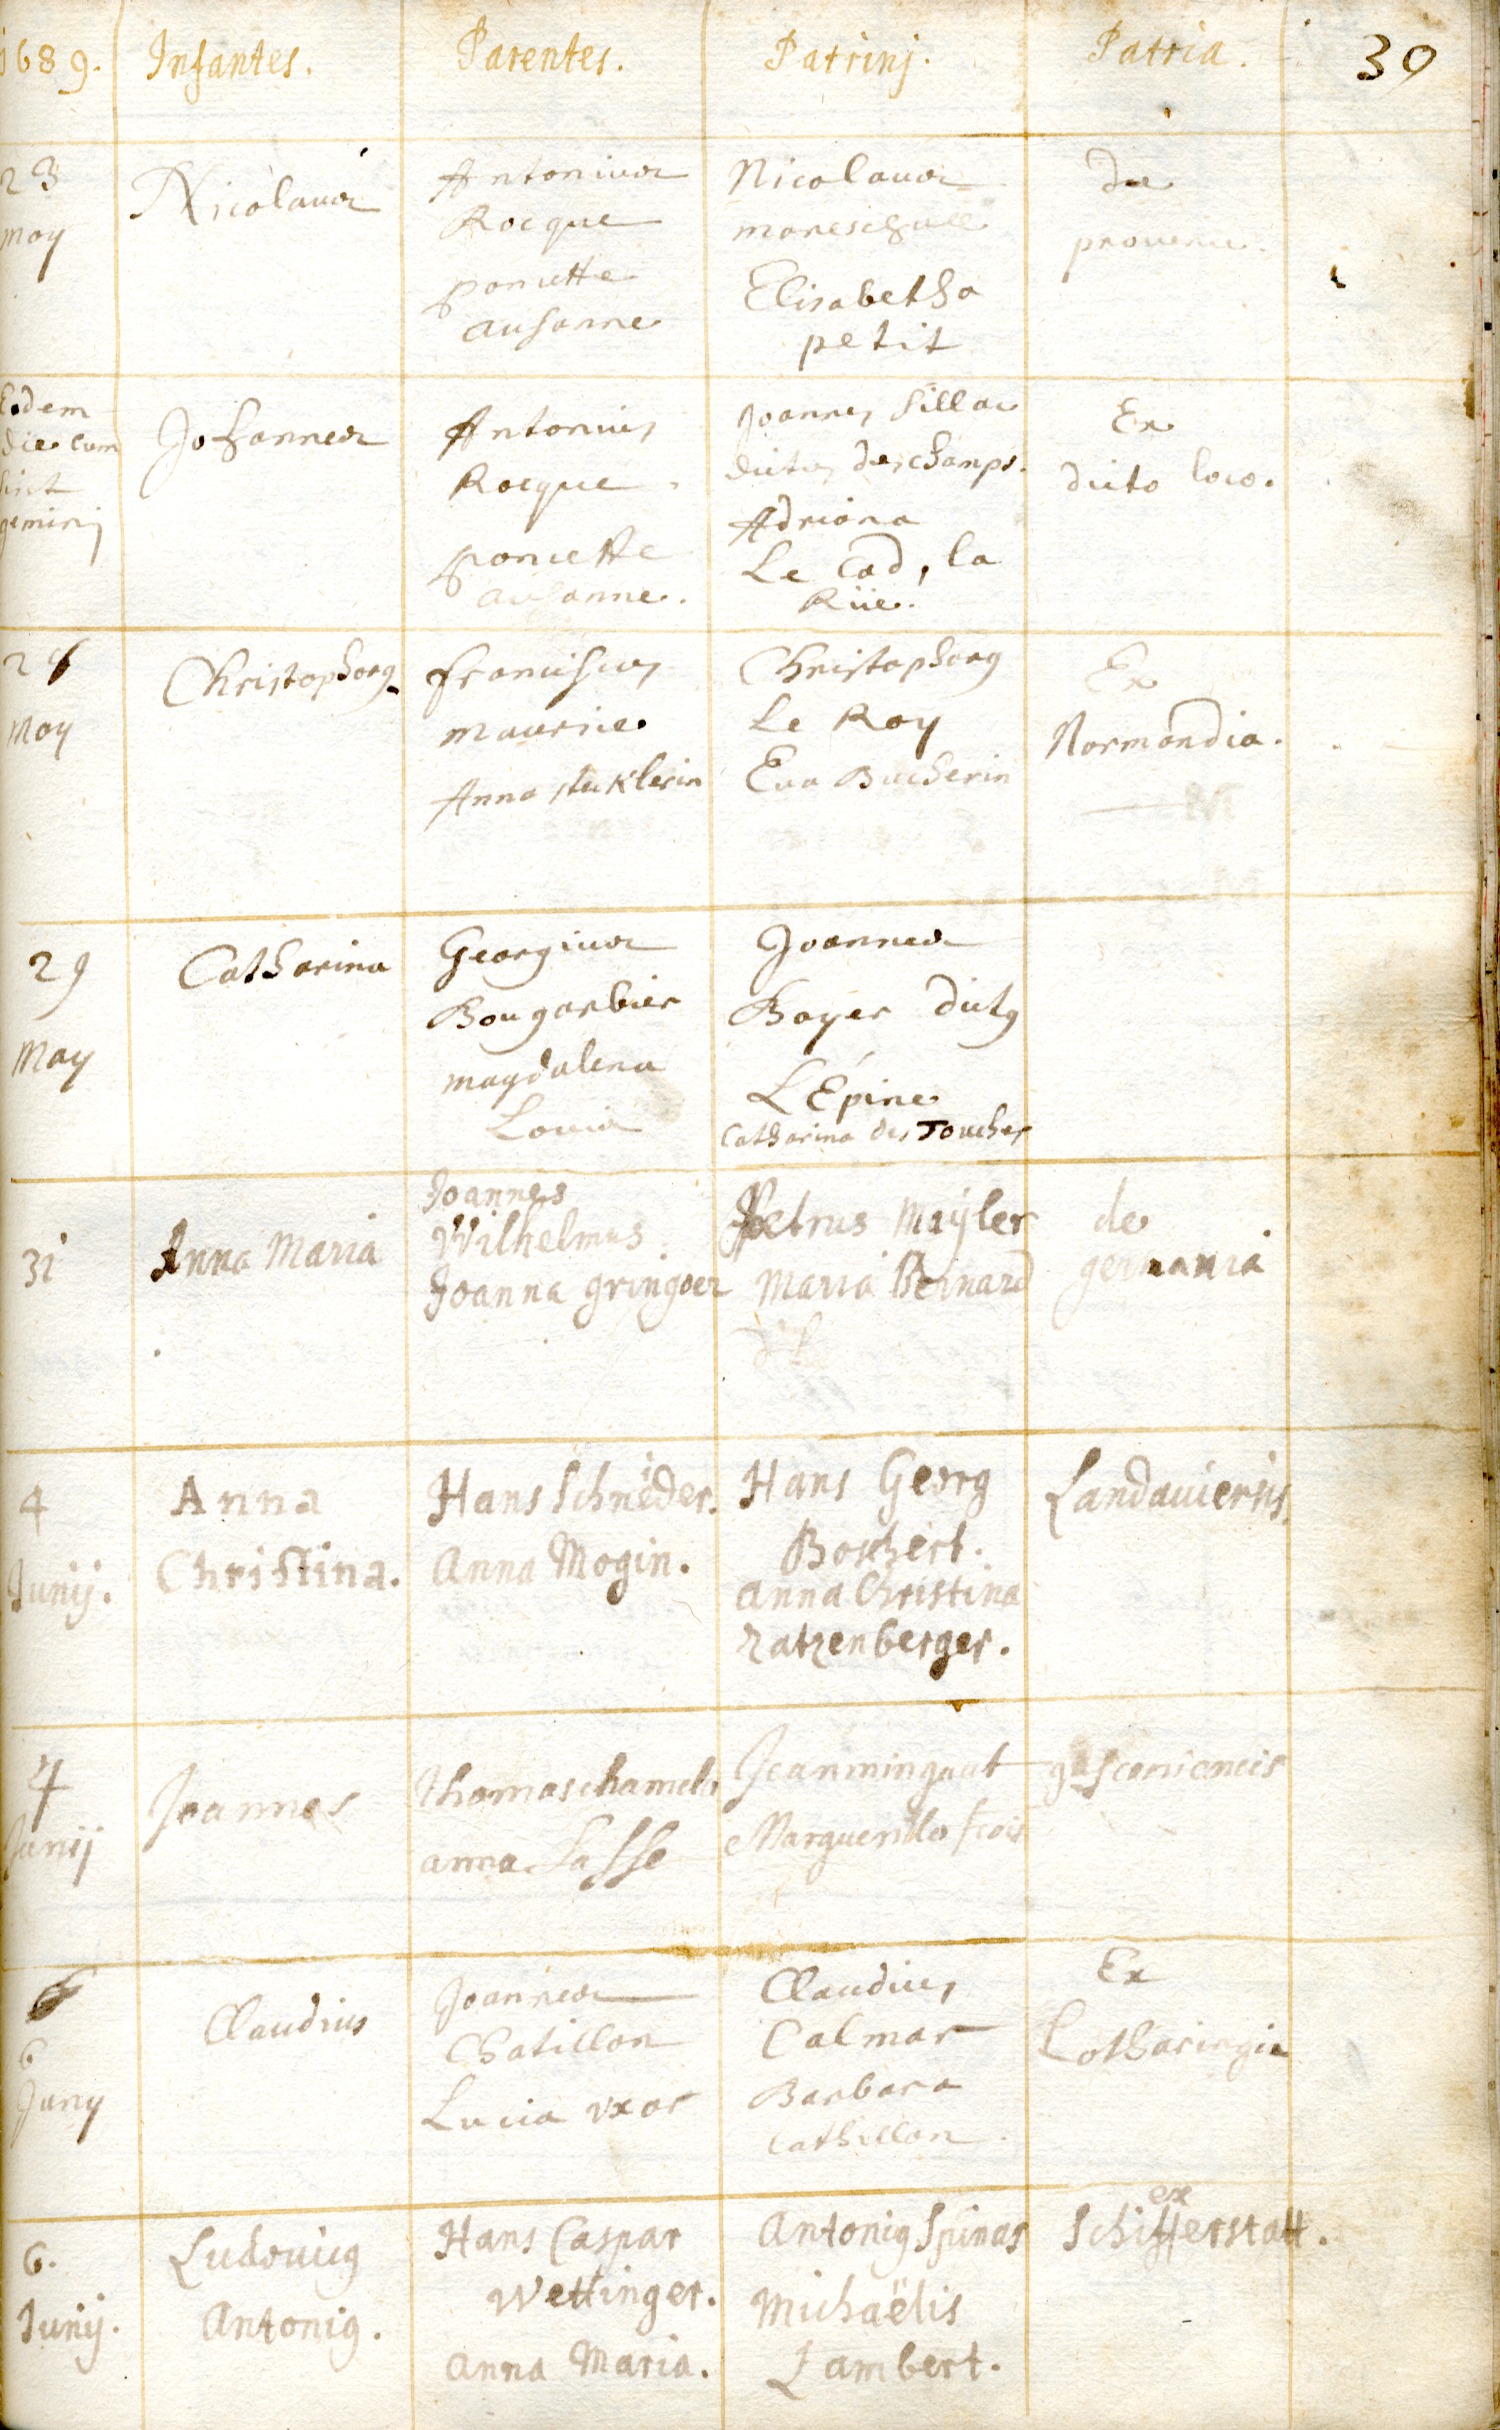 1689. Infantes. Parentes. Patrinj. Patria. 39
23
May
Nicolaus
Antonius
Rocque
ponsette
ausanne
Nicolaus
mareschall
Elisabetha
petit
de
provence.
Eodem
die cum
sint
geminj
Johannes
Antonius
Rocque
ponsette
ausanne.
Joannes Sillac
dictus deschamps.
Adriana
Le Cad, la
Rüe.
Ex
dicto loco.
May
Christophorus
franciscus
maurice
Anna stecklerin
Christophorus
Le Roy
Eva Bucherin
Ex
Normandia.
29
May
Catharina
Georgius
Bougarbier
magdalena
Louis
Joannes
Boyer dictus
L'Épine
Catharina des Touches
31
Anna Maria
Joannes
Wilhelmus
Joanna gringoer
Petrus Maÿler
Maria Bernard
de
germania
4
Junij.
Anna
Christina.
Hans Schneider.
Anna Mogin.
Hans Georg
Boschert.
Anna Christina
Zatzenberger.
Landaviensis
4
Junij
Joannes
Thomas chamelo
anna Lasse
Jean mingaut
Margueritte
gasconiencis
6
Juny
Claudius
Joannes
Chatillon
Lucia uxor
Claudius
Calmar
Barbara
Cathillon
Ex
Lotharingia
6.
Junij.
Ludovicus
Antonius.
Hans Caspar
Wettinger.
Anna Maria.
Antonius Spinas
Michaëlis
Lambert.
ex
Schifferstatt.